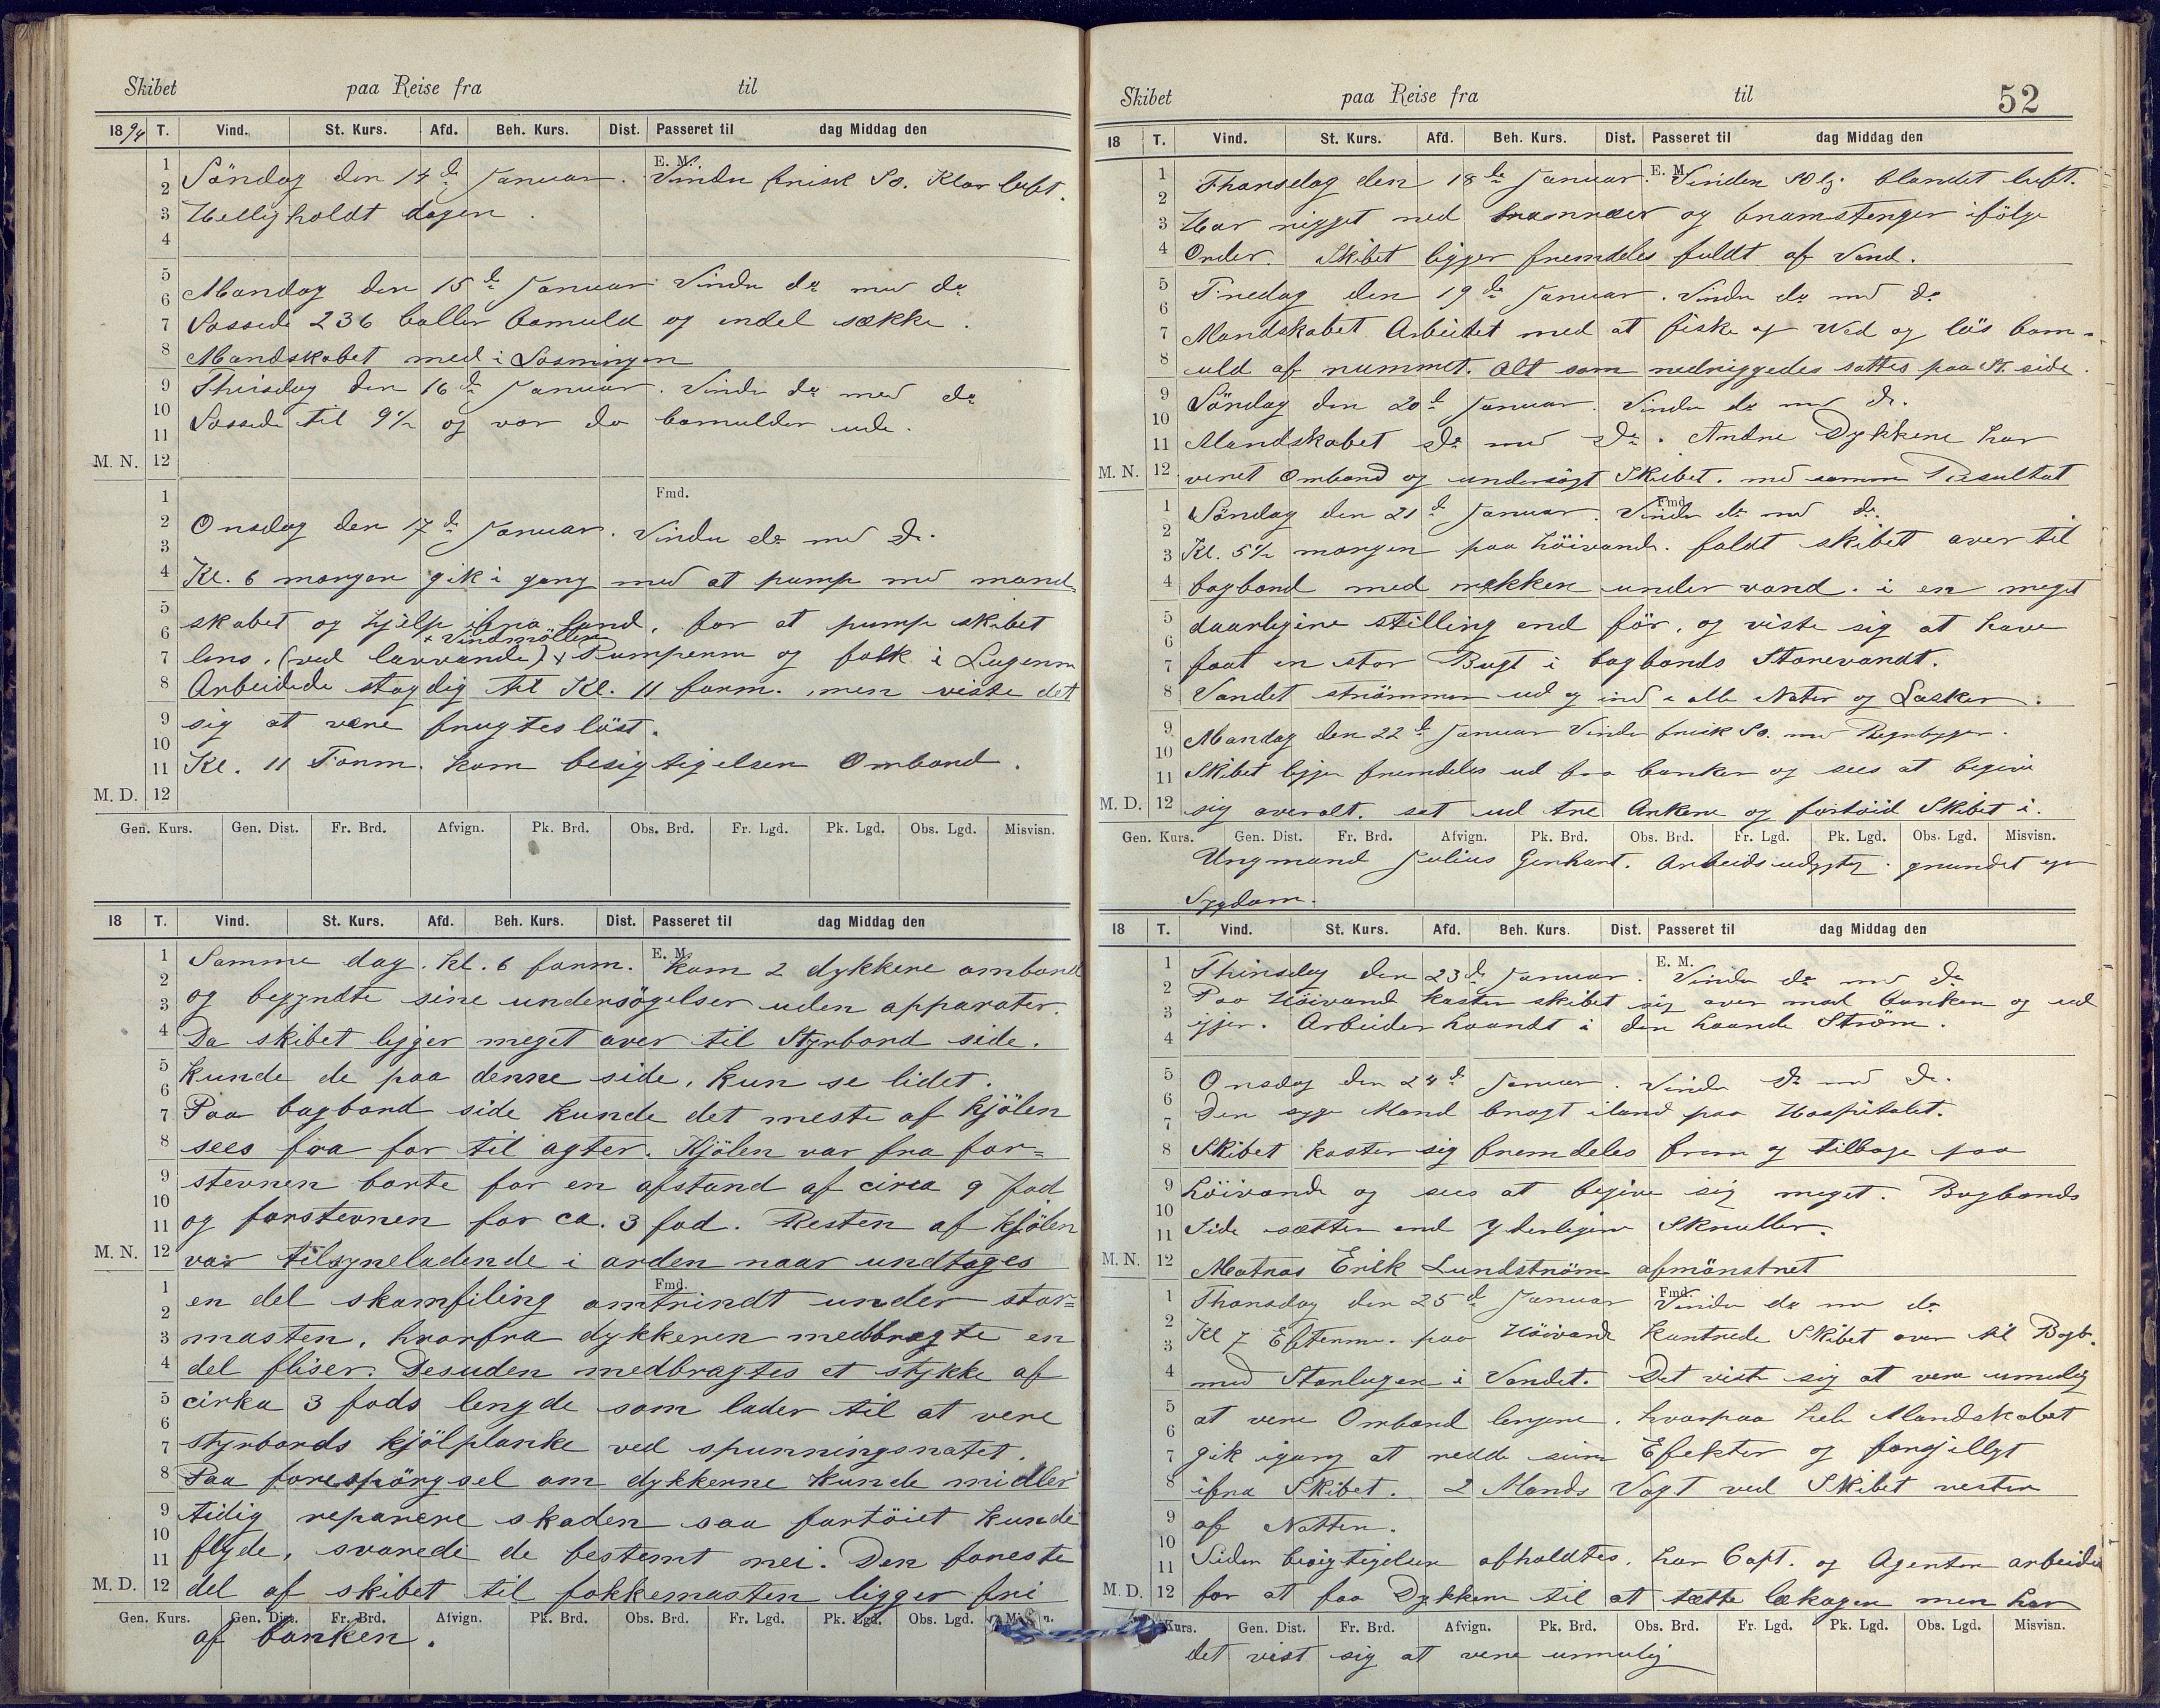 Skibet paa Reise fra til
1894 T. Vind. St. Kurs. Afd. Beh. Kurs. Dist. Passeret til dag Middag den
E. M.
Söndag den 14de Januar. Vinden frisk So. Klar luft.
Helligholdt dagen.
Mandag den 15de Januar Vinden do med do
Lossede 236 baller bomuld og endel sække.
Mandskabet med i Losningen
Thirsdag den 16de Januar. Vinden do med do
Lossede til 9½ og var da bomulden ude.
M. N.
Fmd.
Onsdag den 17de Januar. Vinden do med do.
Kl. 6 morgen gik i gang med at pump med mand-
skabet og hjelp ifra land, for at pump skibet
+ Vindmöllen
lens, (ved lavvande) + Pumperne og folk i Lugerne
Arbeidede stagdig til Kl. 11 form. men viste det
sig at være frugtesløst.
Kl. 11 Form. kom besigtigelsen Ombord.
M. D.
Gen. Kurs. Gen. Dist. Fr. Brd. Afvign. Pk. Brd. Obs. Brd. Fr. Lgd. Pk. Lgd. Obs. Lgd. Misvisn.
18 T. Vind. St. Kurs. Afd. Beh. Kurs. Dist. Passeret til dag Middag den
E. M.
Samme dag. Kl. 6 form. kom 2 dykkere ombord
og begyndte sine undersögelser uden apparater.
Da skibet ligger meget over til Styrbord side.
kunde de paa denne side, kun se lidet.
Paa bagbord side kunde det meste af kjölen
sees fra for til agter. Kjölen var fra for=
stevnen borte for en afstand af circa 9 fod
og forstevnen for ca. 3 fod. Resten af kjölen
M. N. var tilsyneladende i orden naar undtages
Fmd.
en del skamfiling omtrindt under stor=
masten, hvorfra dykkeren medbragte en
del fliser. Desuden medbragtes et stykke af
cirka 3 fods lengde som lader til at vere
styrbords kjölplanke ved spunningsnatet.
Paa forespörgsel om dykkerne kunde midler
tidig reparere skaden saa fartöiet kunde
flyde, svarede de bestemt nei. Den foreste
M. D. del af skibet til fokkemasten ligger fri
Gen. Kurs. Gen. Dist. Fr. Brd. Afvign. Pk. Brd. Obs. Brd. Fr. Lgd. Pk. Lgd. Obs. Lgd.
af banken.
52
Skibet paa Reise fra til
18 T. Vind. St. Kurs. Afd. Beh. Kurs. Dist. Passeret til dag Middag den
E. M.
Thorsdag den 18de Januar. Vinden SOlg. blandet luft.
Har rigget ned bramræer og bramstenger ifölge
Order. Skibet ligger fremdeles fuldt af Vand.
Fredag den 19de Januar. Vinden do med do
Mandskabet Arbeidet med at fiske op Ved og lös bom-
uld af rummet. Alt som nedriggedes sattes paa St. side.
Söndag den 20de Januar. Vinden do med do.
Mandskabet do med do. Andre Dykkere har
M. N. veret Ombord og undersögt Skibet. med samme Resultat
Fmd.
Söndag den 21de Januar. Vinden do med do.
Kl. 5½ morgen paa höivande. faldt skibet over til
bagbord med rekken under vand. i en meget
daarligere stilling end för, og viste sig at have
faat en stor Bugt i bagbords Storevandt.
Vandet strömmer ud og ind i alle Nater og Lasker.
Mandag den 22de Januar Vinden frisk So. med Regnbyger.
Skibet ligger fremdeles ud fra banken og sees at begive
M. D. sig overalt. sat ud tre Ankere og fortöid Skibet i.
Gen. Kurs. Gen. Dist. Fr. Brd. Afvign. Pk. Brd. Obs. Brd. Fr. Lgd. Pk. Lgd. Obs. Lgd. Misvisn.
Ungmand Julius Gerhart. Arbeidsudygtig. grundet
Sygdom.
18 T. Vind. St. Kurs. Afd. Beh. Kurs. Dist. Passeret til dag Middag den
E. M.
Thirsdag den 23de Januar. Vinden do med do
Paa Höivand kaster skibet sig over mod banken og ud
igjen. Arbeider haardt i den haarde Ström.
Onsdag den 24de Januar. Vinden do med do.
Den syge Mand bragt iland paa Hospitalet.
Skibet kaster sig fremdeles frem og tilbage paa
höivande og sees at begive sig meget. Bagbords
Side sætter end yderligere Skruller.
M. N. Matros Erik Lundström afmönstret
Fmd.
Thorsdag den 25de Januar Vinden do med do
Kl 7 Efterm. paa Höivand kantrede Skibet over til Bagb.
med Storlugen i Vandet. Det viste sig at vere umulig
at vere Ombord lengere. hvorpaa hele Mandskabet
gik igang at redde sine Efekter og forsjelligt
ifra Skibet. 2 Mands Vagt ved Skibet resten
af Natten.
Siden besigtigelsen afholdtes. har Capt. og Agenten arbeidet
M. D. for at faa Dykkere til at tætte lækagen men har
Kurs. Gen. Dist. Fr. Brd. Afvign. Pk. Brd. Obs. Brd. Fr. Lgd. Pk. Lgd. Obs. Lgd. Misvisn.
det vist sig at vere umulig